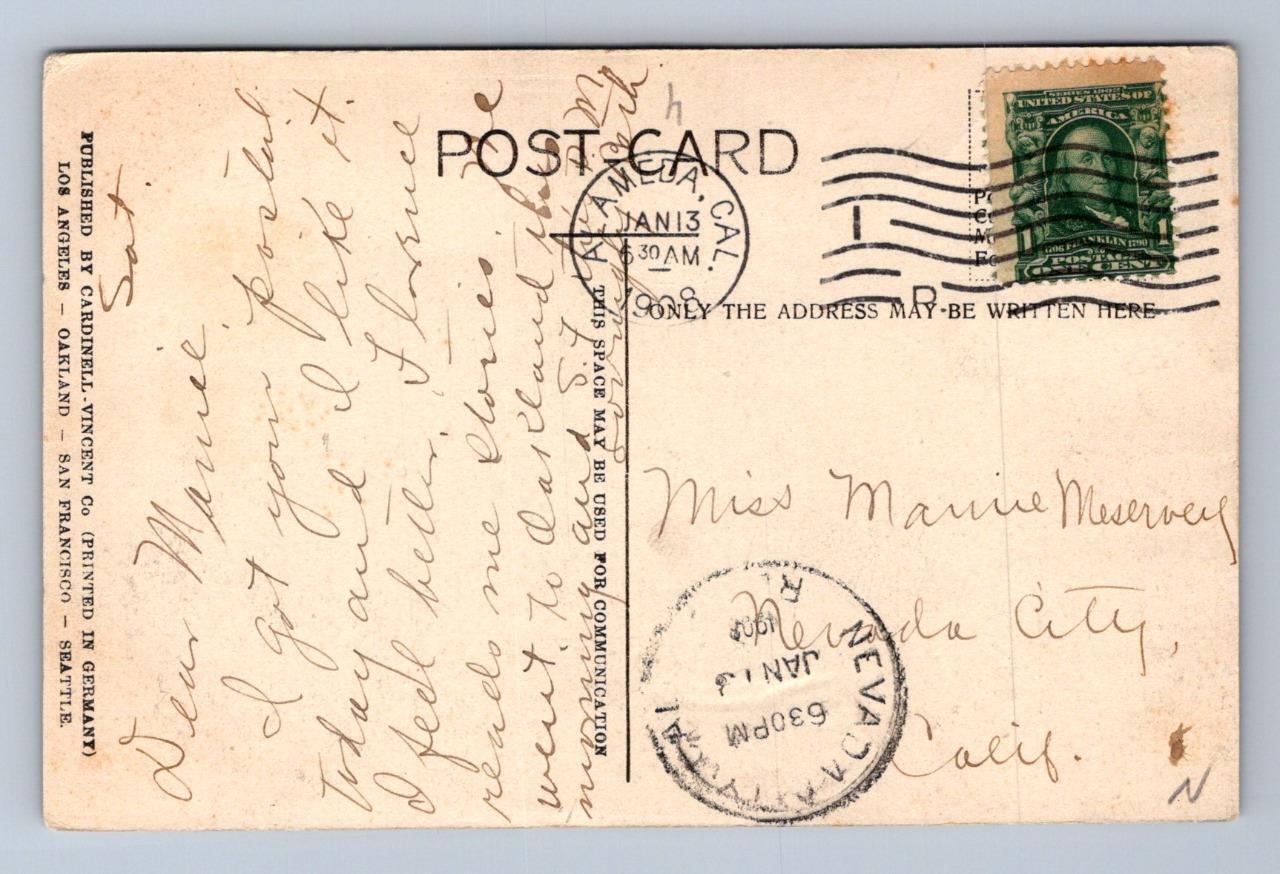 POST CARD
ALAMEDA, CAL.
JAN 13
6 30 AM
1908
SERIES 1902
UNITED STATES OF
AMERICA
1706 FRANKLIN 1790
1 1
POSTAGE
ONE CENT
ONLY THE ADDRESS MAY BE WRITTEN HERE
THIS SPACE MAY BE USED FOR COMMUNICATION
PUBLISHED BY CARDINELL-VINCENT Co (PRINTED IN GERMANY)
LOS ANGELES – OAKLAND – SAN FRANCISCO – SEATTLE.
Sat.
Dear Marie
I got your postal
today and I like it.
I feel better. Florence
reads me stories. We
went to Oakland this
morning and S.F.
Miss Marie Meservey
Nevada City,
Calif.
NEVADA CITY, CAL
630 PM
JAN 13
190
N